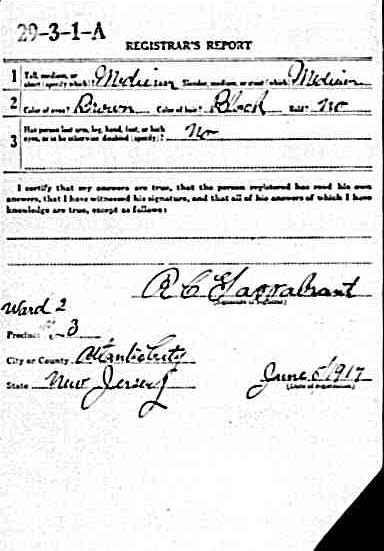 29-3-1-A
REGISTRAR'S REPORT
1 Tall, medium, or short (specify which)? Medium Slender, medium, or stout (which)? Medium
2 Color of eyes? Brown Color of hair? Black Bald? No
3 Has person lost arm, leg, hand, foot, or both eyes, or is he otherwise disabled (specify)? No
I certify that my answers are true, that the person registered has read his own
answers, that I have witnessed his signature, and that all of his answers of which I have
knowledge are true, except as follows:
R C
Ward 2
Precinct 3
City or County Atlantic City
State New Jersey
June 5/1917